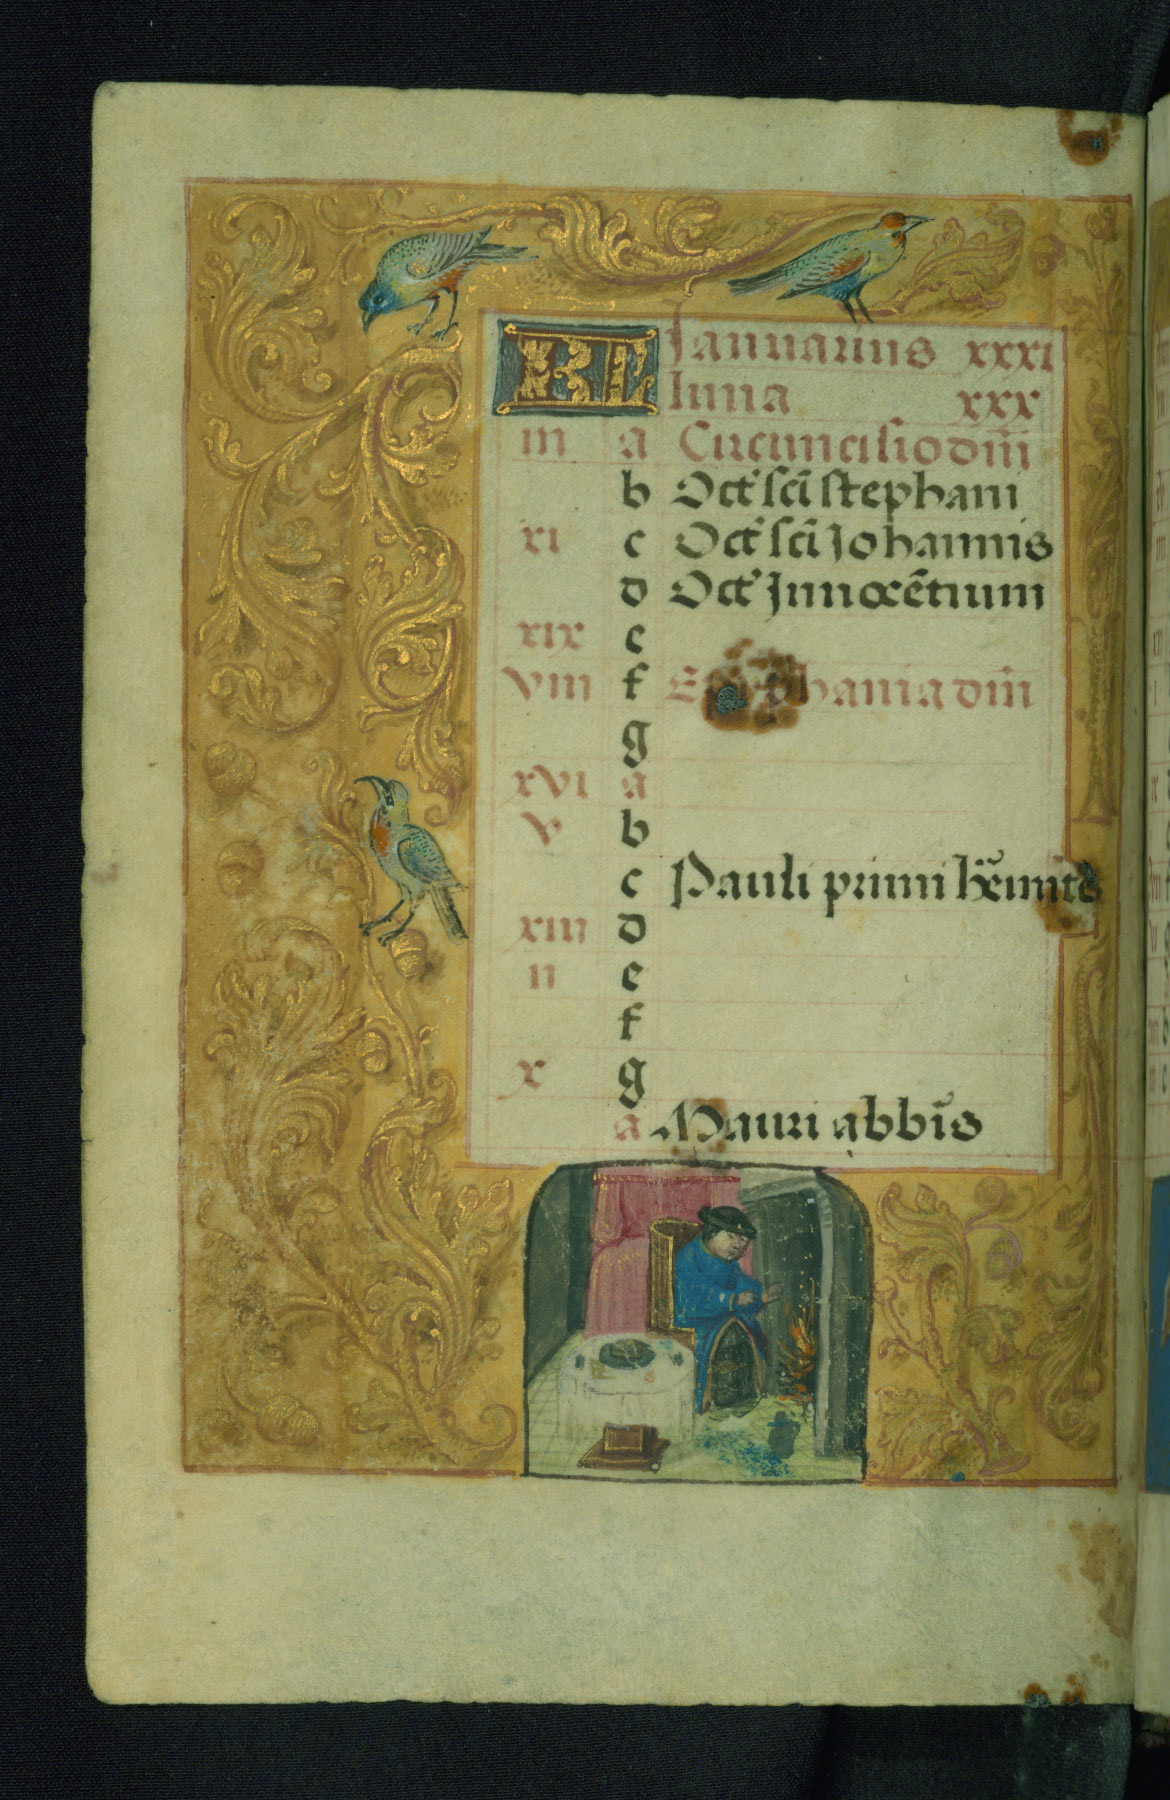 KL Januarius xxxi
luna xxx
iii a Circumcisio dñi
b Oct' sci stephani
xi c Oct' sci Johannis
d Oct' Innocẽtium
xix e
viii f Epyphania dñi
g
xvi a
v b
c Pauli primi h'emite
xiii d
ii e
f
x g
a Mauri abb̃is